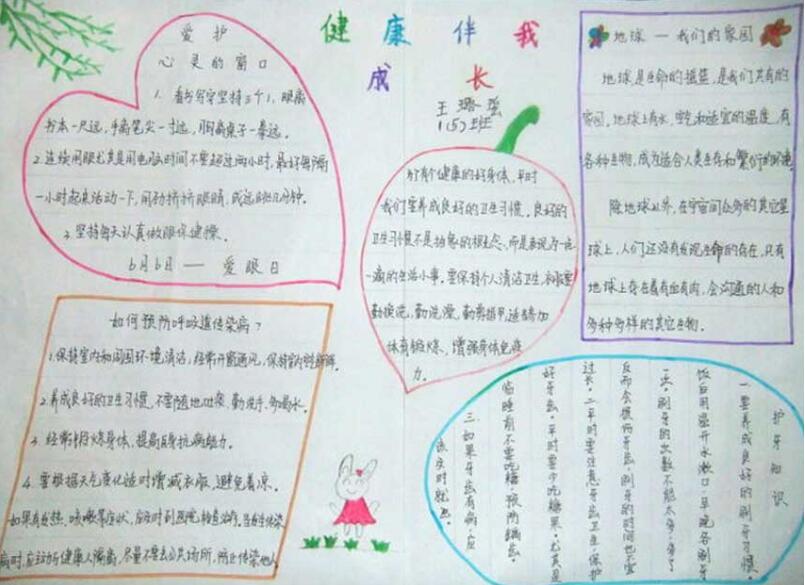 健康伴我
成长
王璐瑶
1(5)班
爱护
心灵的窗口
1. 看书写字坚持三个1，眼离
书本一尺远，手离笔尖一寸远，胸离桌子一拳远。
2.连续用眼尤其是用电脑时间不要超过两小时，最好每隔
一小时起来活动一下，用劲挤挤眼睛，或远眺几分钟。
3.坚持每天认真做眼保健操。
6月6日——爱眼日
为了有个健康的好身体，平时
我们要养成良好的卫生习惯。良好的
卫生习惯不是抽象的概念，而是表现为一点
一滴的生活小事。要保持个人清洁卫生，
勤换洗，勤洗澡，勤剪指甲，适当参加
体育锻炼，增强身体免疫
力。
地球—我们的家园
地球是生命的摇篮，是我们共有的
家园。地球上有水，空气和适宜的温度，有
各种生物，成为适合人类生存和繁衍的环境。
除地球以外，在宇宙间众多的其它星
球上，人们还没有发现生命的存在，只有
地球上存在着有血有肉，会沟通的人和
多种多样的其它生物。
如何预防呼吸道传染病？
1.保持室内和周围环境清洁，经常开窗通风，保持室内空气新鲜。
2.养成良好的卫生习惯，不要随地吐痰，勤洗手，多喝水。
3.经常锻炼身体，提高自身抗病能力。
4.要根据天气变化适时增减衣服，避免着凉。
如果有发热、咳嗽等症状，应及时到医院检查治疗。当发生传染
病时，应主动与健康人隔离，尽量不要去公共场所，防止传染他人。
护牙知识
一.要养成良好的刷牙习惯。
饭后用温开水漱口，早晚各刷牙
一次，刷牙的次数不能太多，多了
反而会损伤牙齿，刷牙的时间也不宜
过长。二.平时要注意牙齿卫生，保护
好牙齿。平时要少吃糖果。尤其是
临睡前不要吃糖，预防龋齿。
三.如果牙齿有病，应
该及时就医。